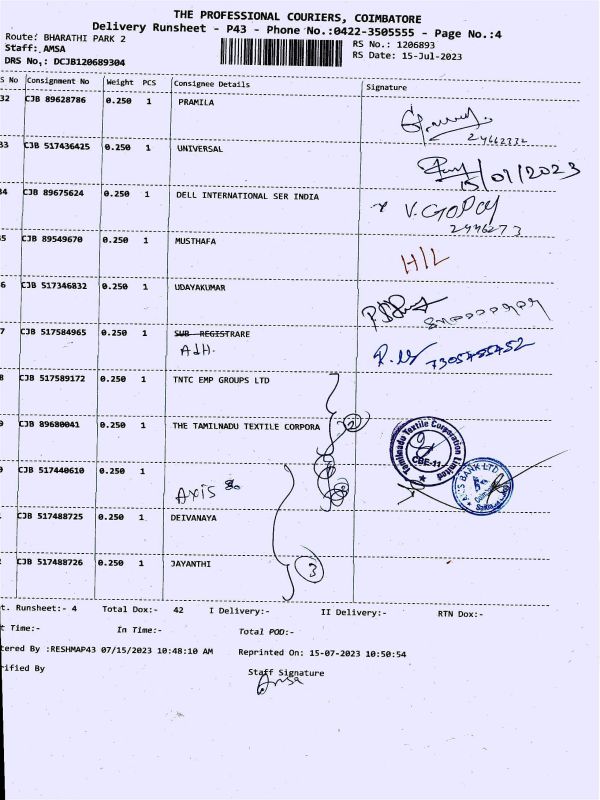 THE PROFESSIONAL COURIERS, COIMBATORE
Delivery Runsheet - P43 - Phone No.:0422-3505555 - Page No.:4
Route: BHARATHI PARK 2
RS No.: 1206893
Staff: AMSA
RS Date: 15-Jul-2023
DRS No,: DCJB120689304
S No Consignment No Weight PCS Consignee Details Signature
32 CJB 89628786 0.250 1 PRAMILA
33 CJB 517436425 0.250 1 UNIVERSAL
/07/2023
34 CJB 89675624 0.250 1 DELL INTERNATIONAL SER INDIA V. GOPAL
2446273
5 CJB 89549670 0.250 1 MUSTHAFA H/L
6 CJB 517346832 0.250 1 UDAYAKUMAR
7 CJB 517584965 0.250 1 SUB REGISTRARE
8 CJB 517589172 0.250 1 TNTC EMP GROUPS LTD
9 CJB 89680041 0.250 1 THE TAMILNADU TEXTILE CORPORA 2
Tamilnadu Textile Corporation Limited
CBE-11
CJB 517440610 0.250 1
AXIS
AXIS BANK LTD
CJB 517488725 0.250 1 DEIVANAYA
CJB 517488726 0.250 1 JAYANTHI 3
t. Runsheet:- 4 Total Dox:- 42 I Delivery:- II Delivery:- RTN Dox:-
t Time:- In Time:- Total POD:-
tered By :RESHMAP43 07/15/2023 10:48:10 AM Reprinted On: 15-07-2023 10:50:54
rified By Staff Signature
Amsa